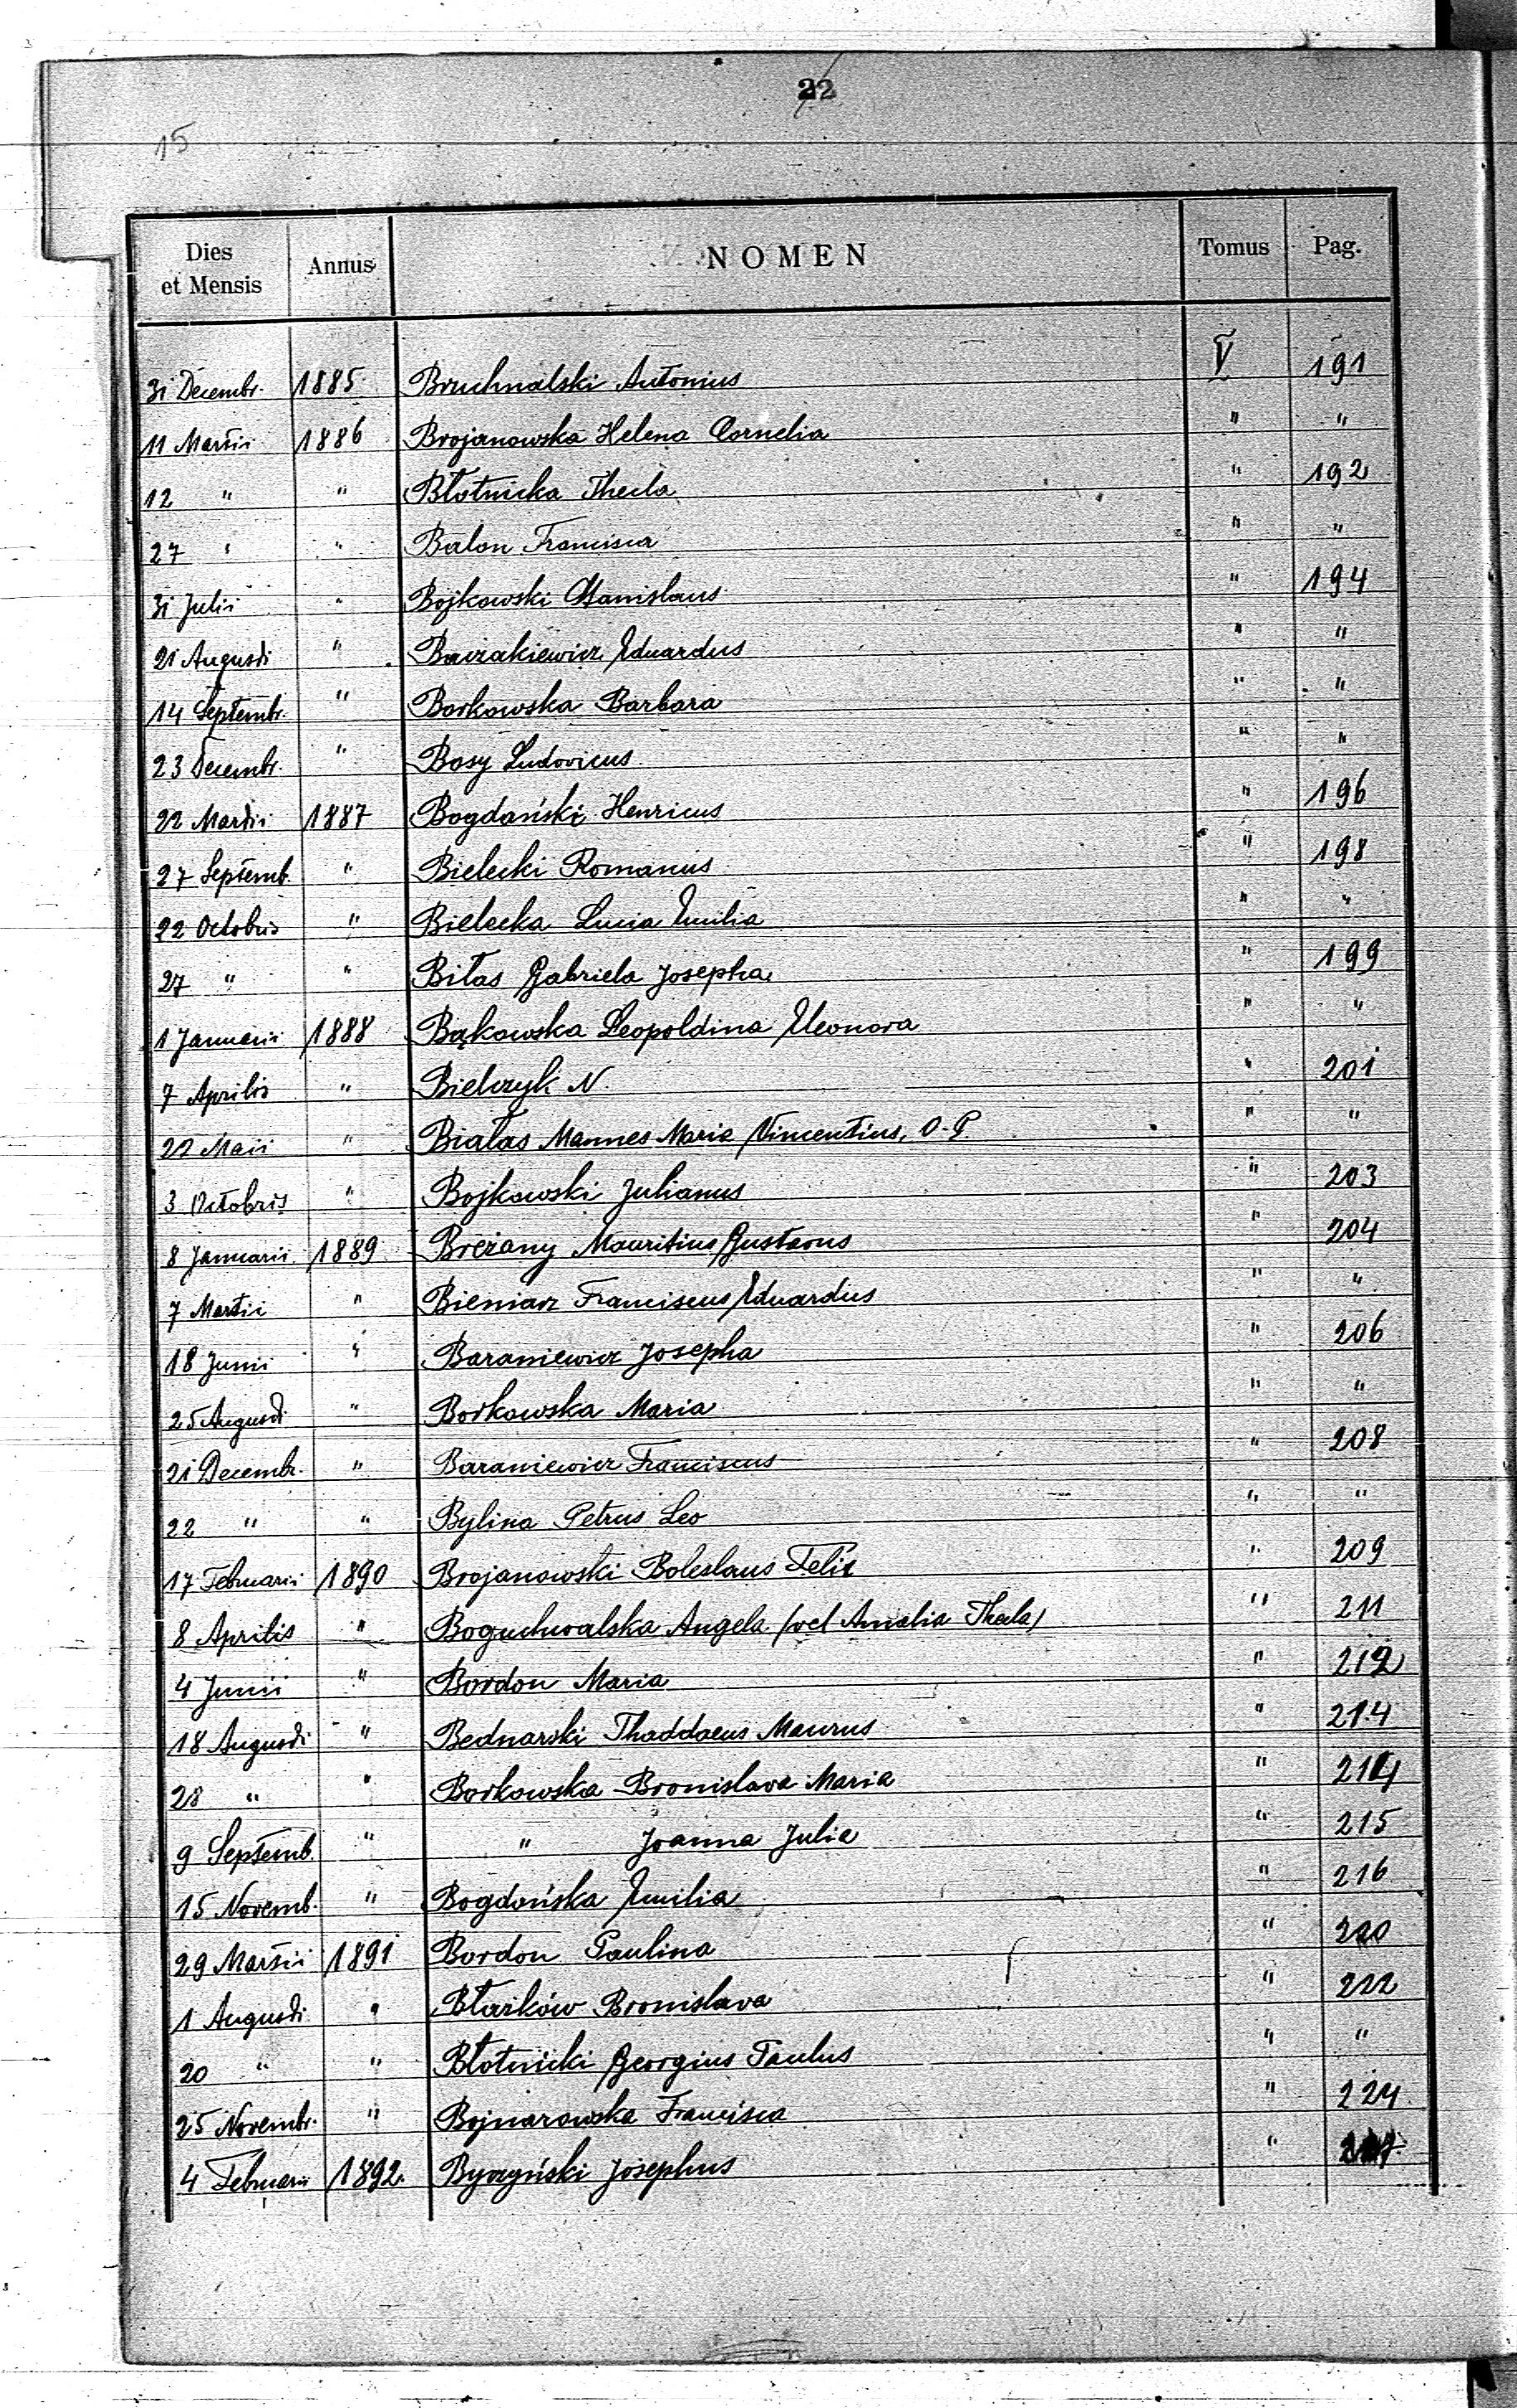 22
15
Dies et Mensis Annus NOMEN Tomus Pag.
31 Decembr. 1885 Bruchnalski Antonius V 191
11 Martii 1886 Brojanowska Helena Cornelia " "
12 " " Błotnicka Thecla " 192
27 " " Balon Francisca " "
31 Julii " Bojkowski Stanislaus " 194
21 Augusti " Baczakiewicz Eduardus " "
14 Septembr. " Borkowska Barbara " "
23 Decembr. " Bosy Ludovicus " "
22 Martii 1887 Bogdański Henricus " 196
27 Septemb. " Bielecki Romanus " 198
22 Octobris " Bielecka Lucia Emilia " "
27 " " Biłas Gabriela Josepha " 199
1 Januarii 1888 Bąkowska Leopoldina Eleonora " "
7 Aprilis " Bielczyk N. " 201
22 Maii " Białas Mannes Maria Vincentius, O. P. " "
3 Octobris " Bojkowski Julianus " 203
8 Januarii 1889 Breżany Mauritius Gustavus " 204
7 Martii " Bieniarz Franciscus Eduardus " "
18 Junii " Baraniewicz Josepha " 206
25 Augusti " Borkowska Maria " "
21 Decembr. " Baraniewicz Franciscus " 208
22 " " Bylina Petrus Leo " "
17 Februarii 1890 Brojanowski Boleslaus Felix " 209
8 Aprilis " Boguchwalska Angela /vel Amalia Thecla/ " 211
4 Junii " Bordon Maria " 212
18 Augusti " Bednarski Thaddaeus Maurus " 214
28 " " Borkowska Bronislava Maria " 214
9 Septemb. " " Joanna Julia " 215
15 Novemb. " Bogdańska Emilia " 216
29 Martii 1891 Bordon Paulina " 220
1 Augusti " Błażków Bronislava " 222
20 " " Błotnicki Georgius Paulus " "
25 Novembr. " Bojnarowska Francisca " 224
4 Februarii 1892. Byczyński Josephus "